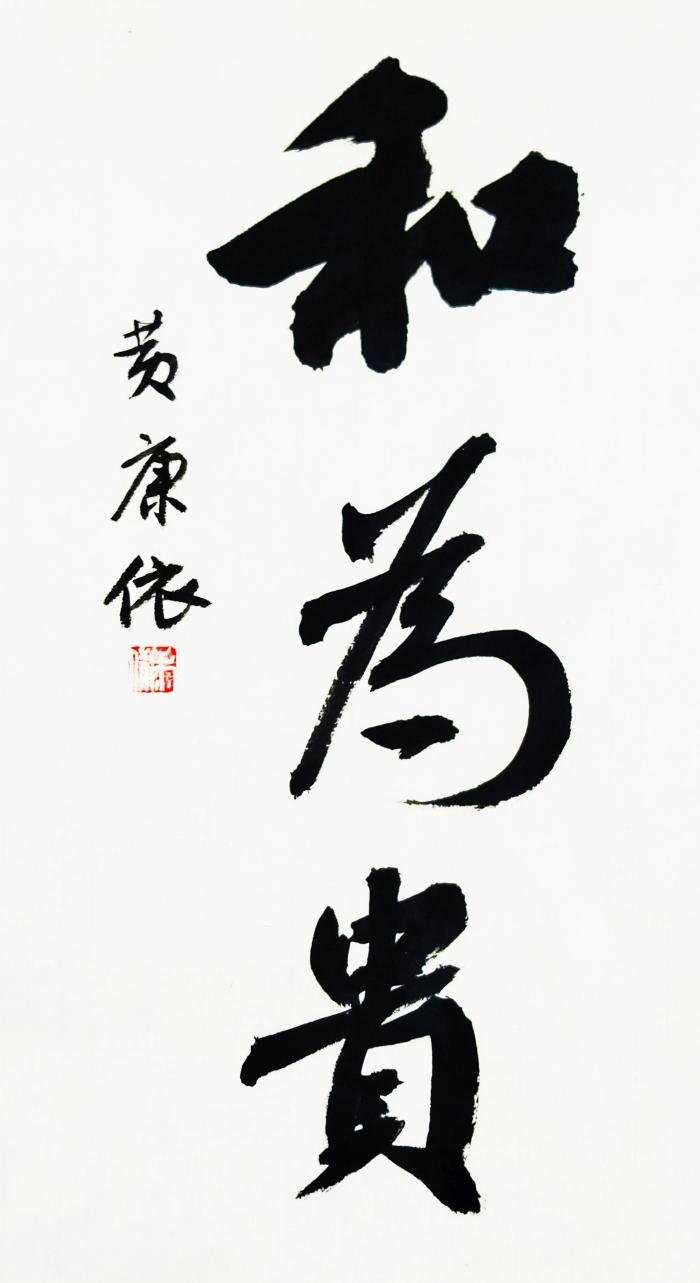 和為貴
黄康侬